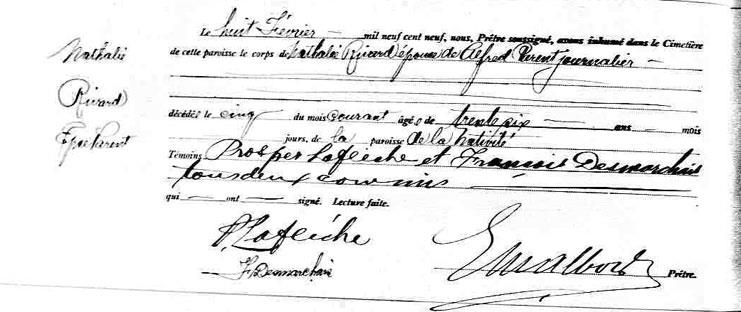 Le huit Février — mil neuf cent neuf, nous, Prêtre soussigné, avons inhumé dans le Cimetière
Nathalie
de cette paroisse le corps de Nathalie Ricard épouse de Alfred Parent journalier —
Ricard
Epse Parent
décédée le cinq du mois courant âgée de trente six — ans — mois
— jours, de la paroisse de la Nativité
Témoins Prosper Lafleche et Francois Desmarchais
tous deux
qui — ont — signé. Lecture faite.
P. Lafleche
F. Desmarchais
Prêtre.